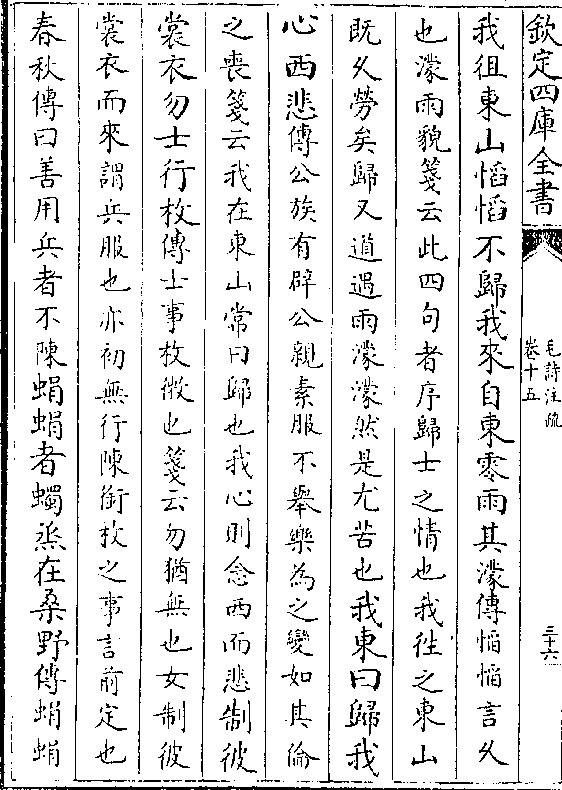 欽定四庫全書
毛詩注疏
卷十五
三十六
我徂東山慆慆不歸我來自東零雨其濛傳慆慆言久
也濛雨貌箋云此四句者序歸士之情也我徃之東山
既乆勞矣歸又道遇雨濛濛然是尤苦也我東曰歸我
心西悲傳公族有辟公親素服不舉樂為之變如其倫
之喪箋云我在東山常曰歸也我心則念西而悲制彼
裳衣勿士行枚傳士事枚微也箋云勿猶無也女制彼
裳衣而來謂兵服也亦初無行陳銜枚之事言前定也
春秋傳曰善用兵者不陳蜎蜎者蠋烝在桑野傳蜎蜎